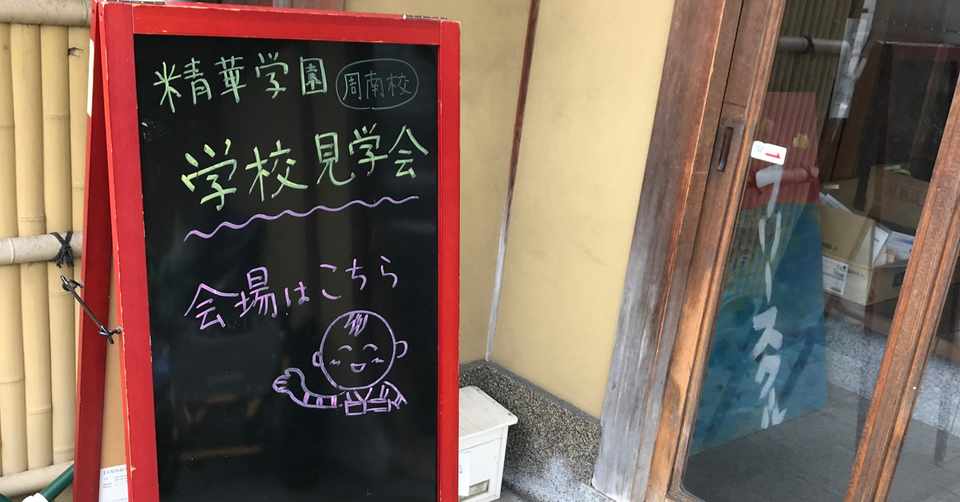 精華学園 周南校
学校見学会
会場はこちら
フリースクール